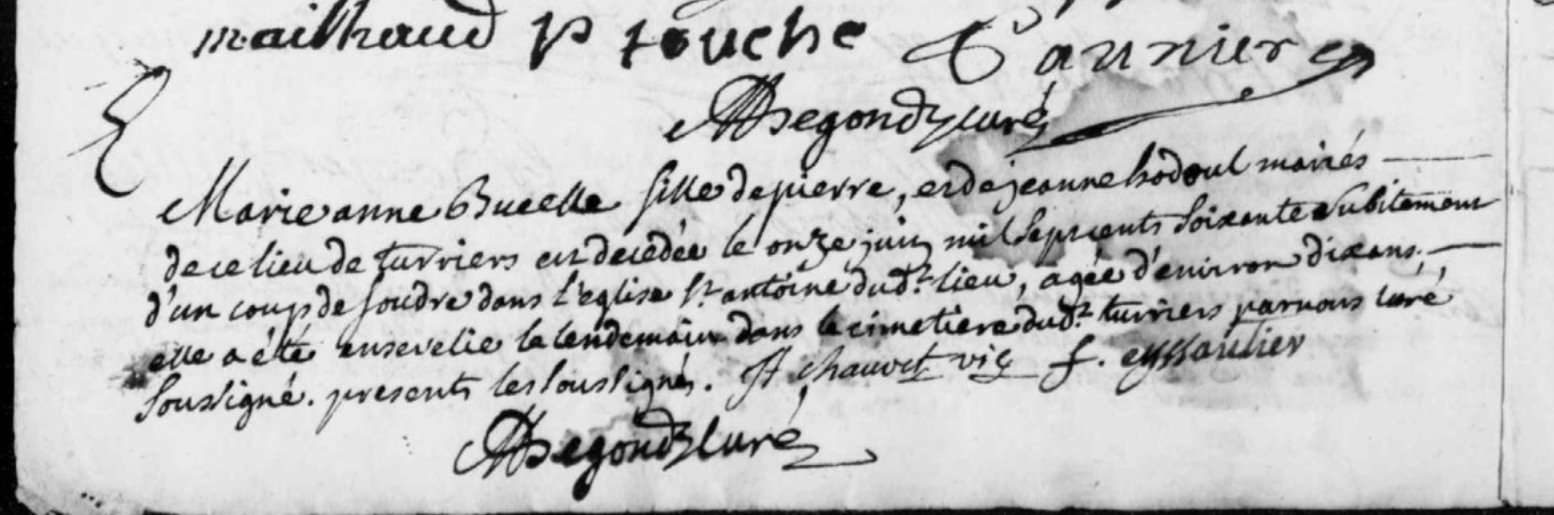 mailhaud P touche Jaunier
Segond curé
Marie anne Bucelle fille de pierre, et de jeanne hodoul mariés
de ce lieu de turriers est decedée le onze juin mil sept cents soixante subitement
d'un coup de foudre dans l'eglise st antoine dudt lieu, agée d'environ dix ans.
elle a été ensevelie le lendemain dans le cimetiere dudt turriers par nous curé
soussigné. presents les soussignés. chauvet vic f. eyssautier
Segond curé